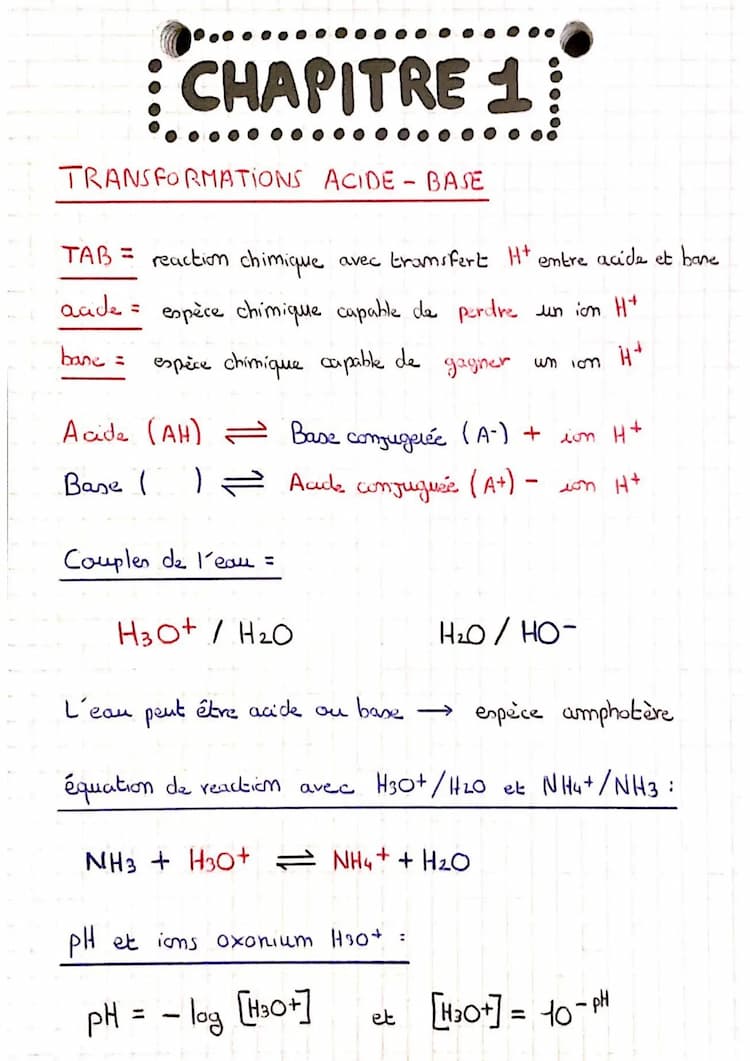 CHAPITRE 1
TRANSFORMATIONS ACIDE - BASE
TAB = reaction chimique avec transfert H+ entre acide et base
acide = espèce chimique capable de perdre un ion H+
base = espèce chimique capable de gagner un ion H+
Acide (AH) ⇌ Base conjugelée (A-) + ion H+
Base ( ) ⇌ Acide conjuguée (A+) - ion H+
Couples de l'eau =
H3O+ / H2O H2O / HO-
L'eau peut être acide ou base → espèce amphotère
équation de reaction avec H3O+/H2O et NH4+/NH3 :
NH3 + H3O+ ⇌ NH4+ + H2O
pH et ions oxonium H3O+ :
pH = - log [H3O+] et [H3O+] = 10^-pH